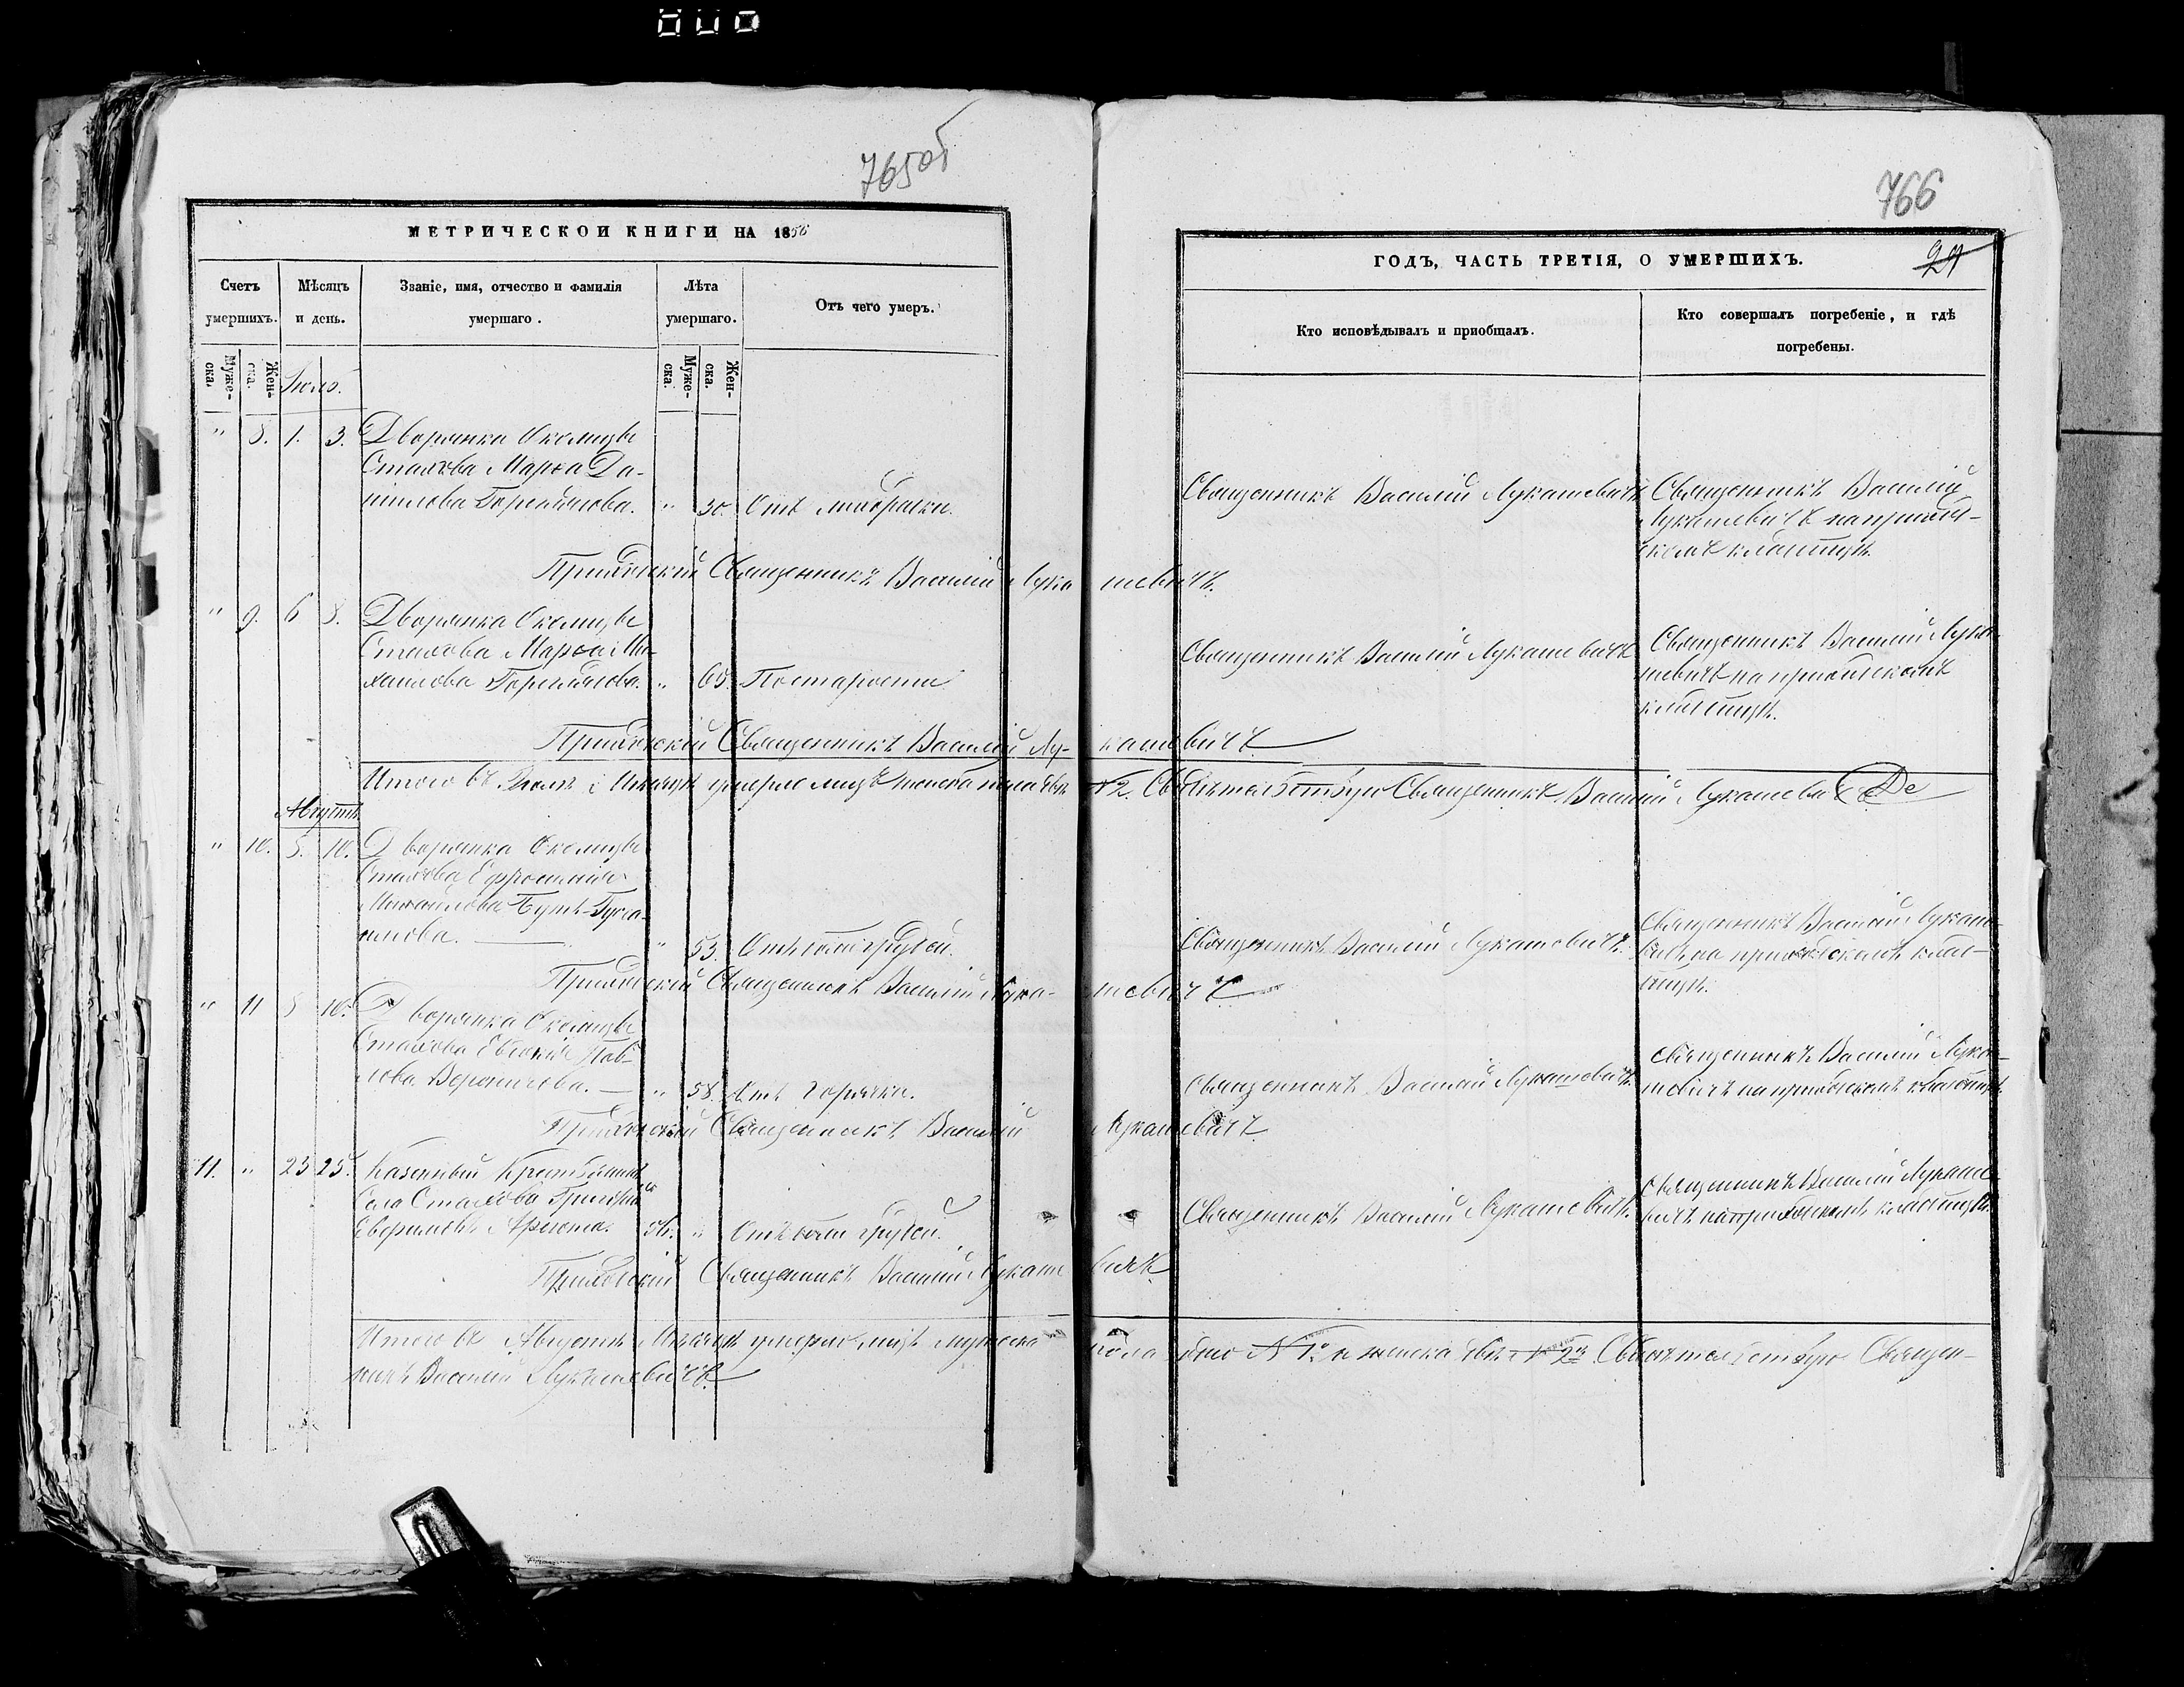 765об
766
МЕТРИЧЕСКОЙ КНИГИ НА 1856
ГОДЪ, ЧАСТЬ ТРЕТІЯ, О УМЕРШИХЪ.
29
Счетъ умершихъ.
Мѣсяцъ и день.
Званіе, имя, отчество и фамилія умершаго.
Лѣта умершаго.
Отъ чего умеръ.
Кто исповѣдывалъ и приобщалъ.
Кто совершалъ погребеніе, и гдѣ погребены.
Муже-ска.
Жен-ска.
Муже-ска.
Жен-ска.
Іюль.
" 8. 1. 3. Дворянка Околицы
Стахова Марѳа Да-
нилова " 30. Отъ
Священникъ Василій Лукашевичъ
Священникъ Василій
Лукашевичъ на приход-
скомъ кладбищѣ.
Приходскій Священникъ Василій Лукашевичъ.
" 9. 6 8. Дворянка Околицы
Стахова Марѳа Ми-
хаилова " 65. По старости
Священникъ Василій Лукашевичъ
Священникъ Василій Лука-
шевичъ на приходскомъ
кладбищѣ.
Приходскій Священникъ Василій Лукашевичъ
Итого въ Іюлѣ Мѣсяцѣ умерло лицъ женска пола двѣ №2. Свидѣтельствую Священникъ Василій Лукашевичъ
Августъ
" 10. 5. 10. Дворянка Околицы
Стахова Ефросинія
Михайлова
" 53. Отъ боли грудей.
Священникъ Василій Лукашевичъ.
Священникъ Василій Лукаше-
вичъ на приходскомъ клад-
бищѣ.
Приходскій Священникъ Василій Лукашевичъ
" 11 8 10. Дворянка Околицы
Стахова Евгенія Пав-
лова " 58. Отъ горячки.
Священникъ Василій Лукашевичъ.
Священникъ Василій Лука-
шевичъ на приходскомъ кладбищѣ
Приходскій Священникъ Василій Лукашевичъ
11. " 23 25. Казенный Крестьянинъ
Села Стахова Григорій
" Отъ боли грудей.
Священникъ Василій Лукашевичъ.
Священникъ Василій Лукаше-
вичъ на приходскомъ кладбищѣ.
Приходскій Священникъ Василій Лукашевичъ
Итого въ Августѣ Мѣсяцѣ умерло лицъ мужска пола одно №1. и женска двѣ №2. Свидѣтельствую Священ-
никъ Василій Лукашевичъ